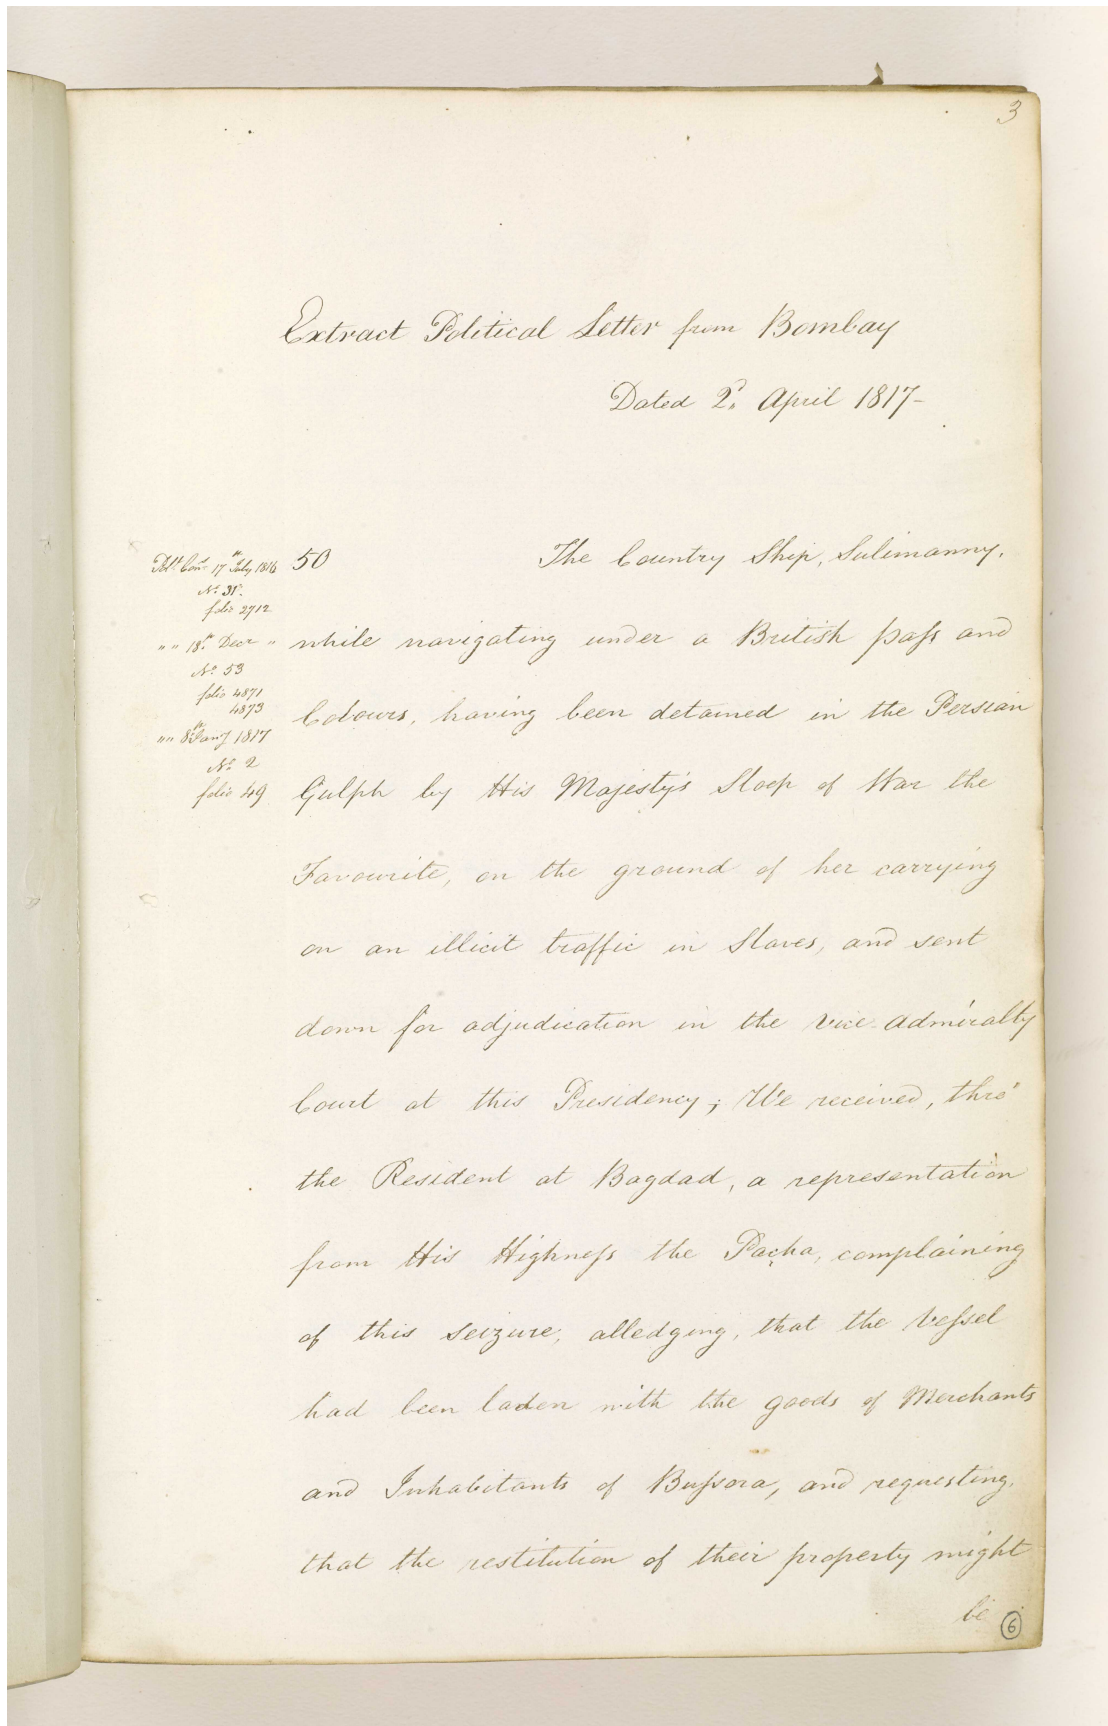 3
Extract Political Letter from Bombay
Dated 2d. April 1817-
Poll. Cons. 17th July 1816
No. 31.
folio 2712
"" 18th. Decr "
No. 53
folio 4871
4873
"" 8th Jany 1817
No. 2
folio 49
50 The Country Ship, Sulimanny,
while navigating under a British paſs and
Colours, having been detained in the Persian
Gulph by His Majesty's Sloop of War the
Favourite, on the ground of her carrying
on an illicit traffic in Slaves, and sent
down for adjudication in the Vice Admiralty
Court at this Presidency; We received, thro'
the Resident at Bagdad, a representation
from His Highneſs the Pacha, complaining
of this seizure, alledging, that the Veſsel
had been laden with the goods of Merchants
and Inhabitants of Buſsora, and requesting,
that the restitution of their property might
be
6